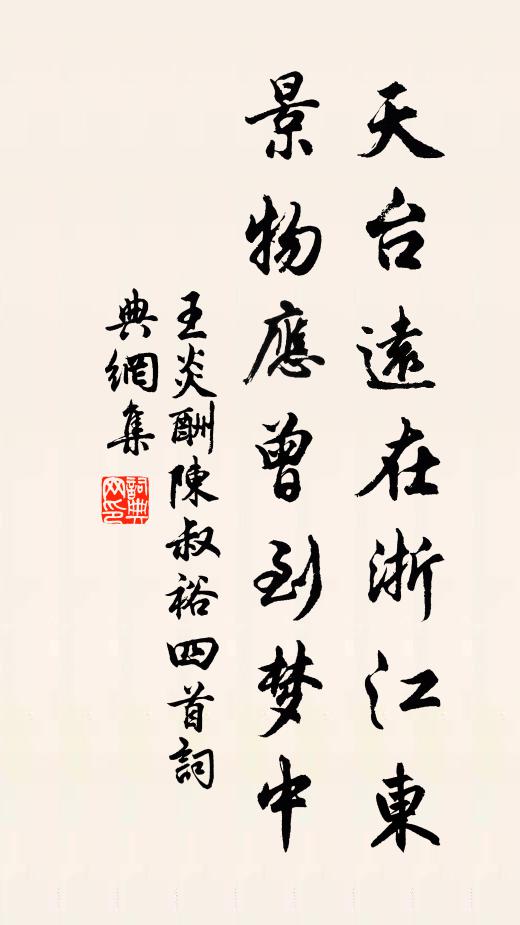 天台遠在浙江東
景物應曾到梦中
王炎酬陳叔裕四首詞
典網集
詞典网印